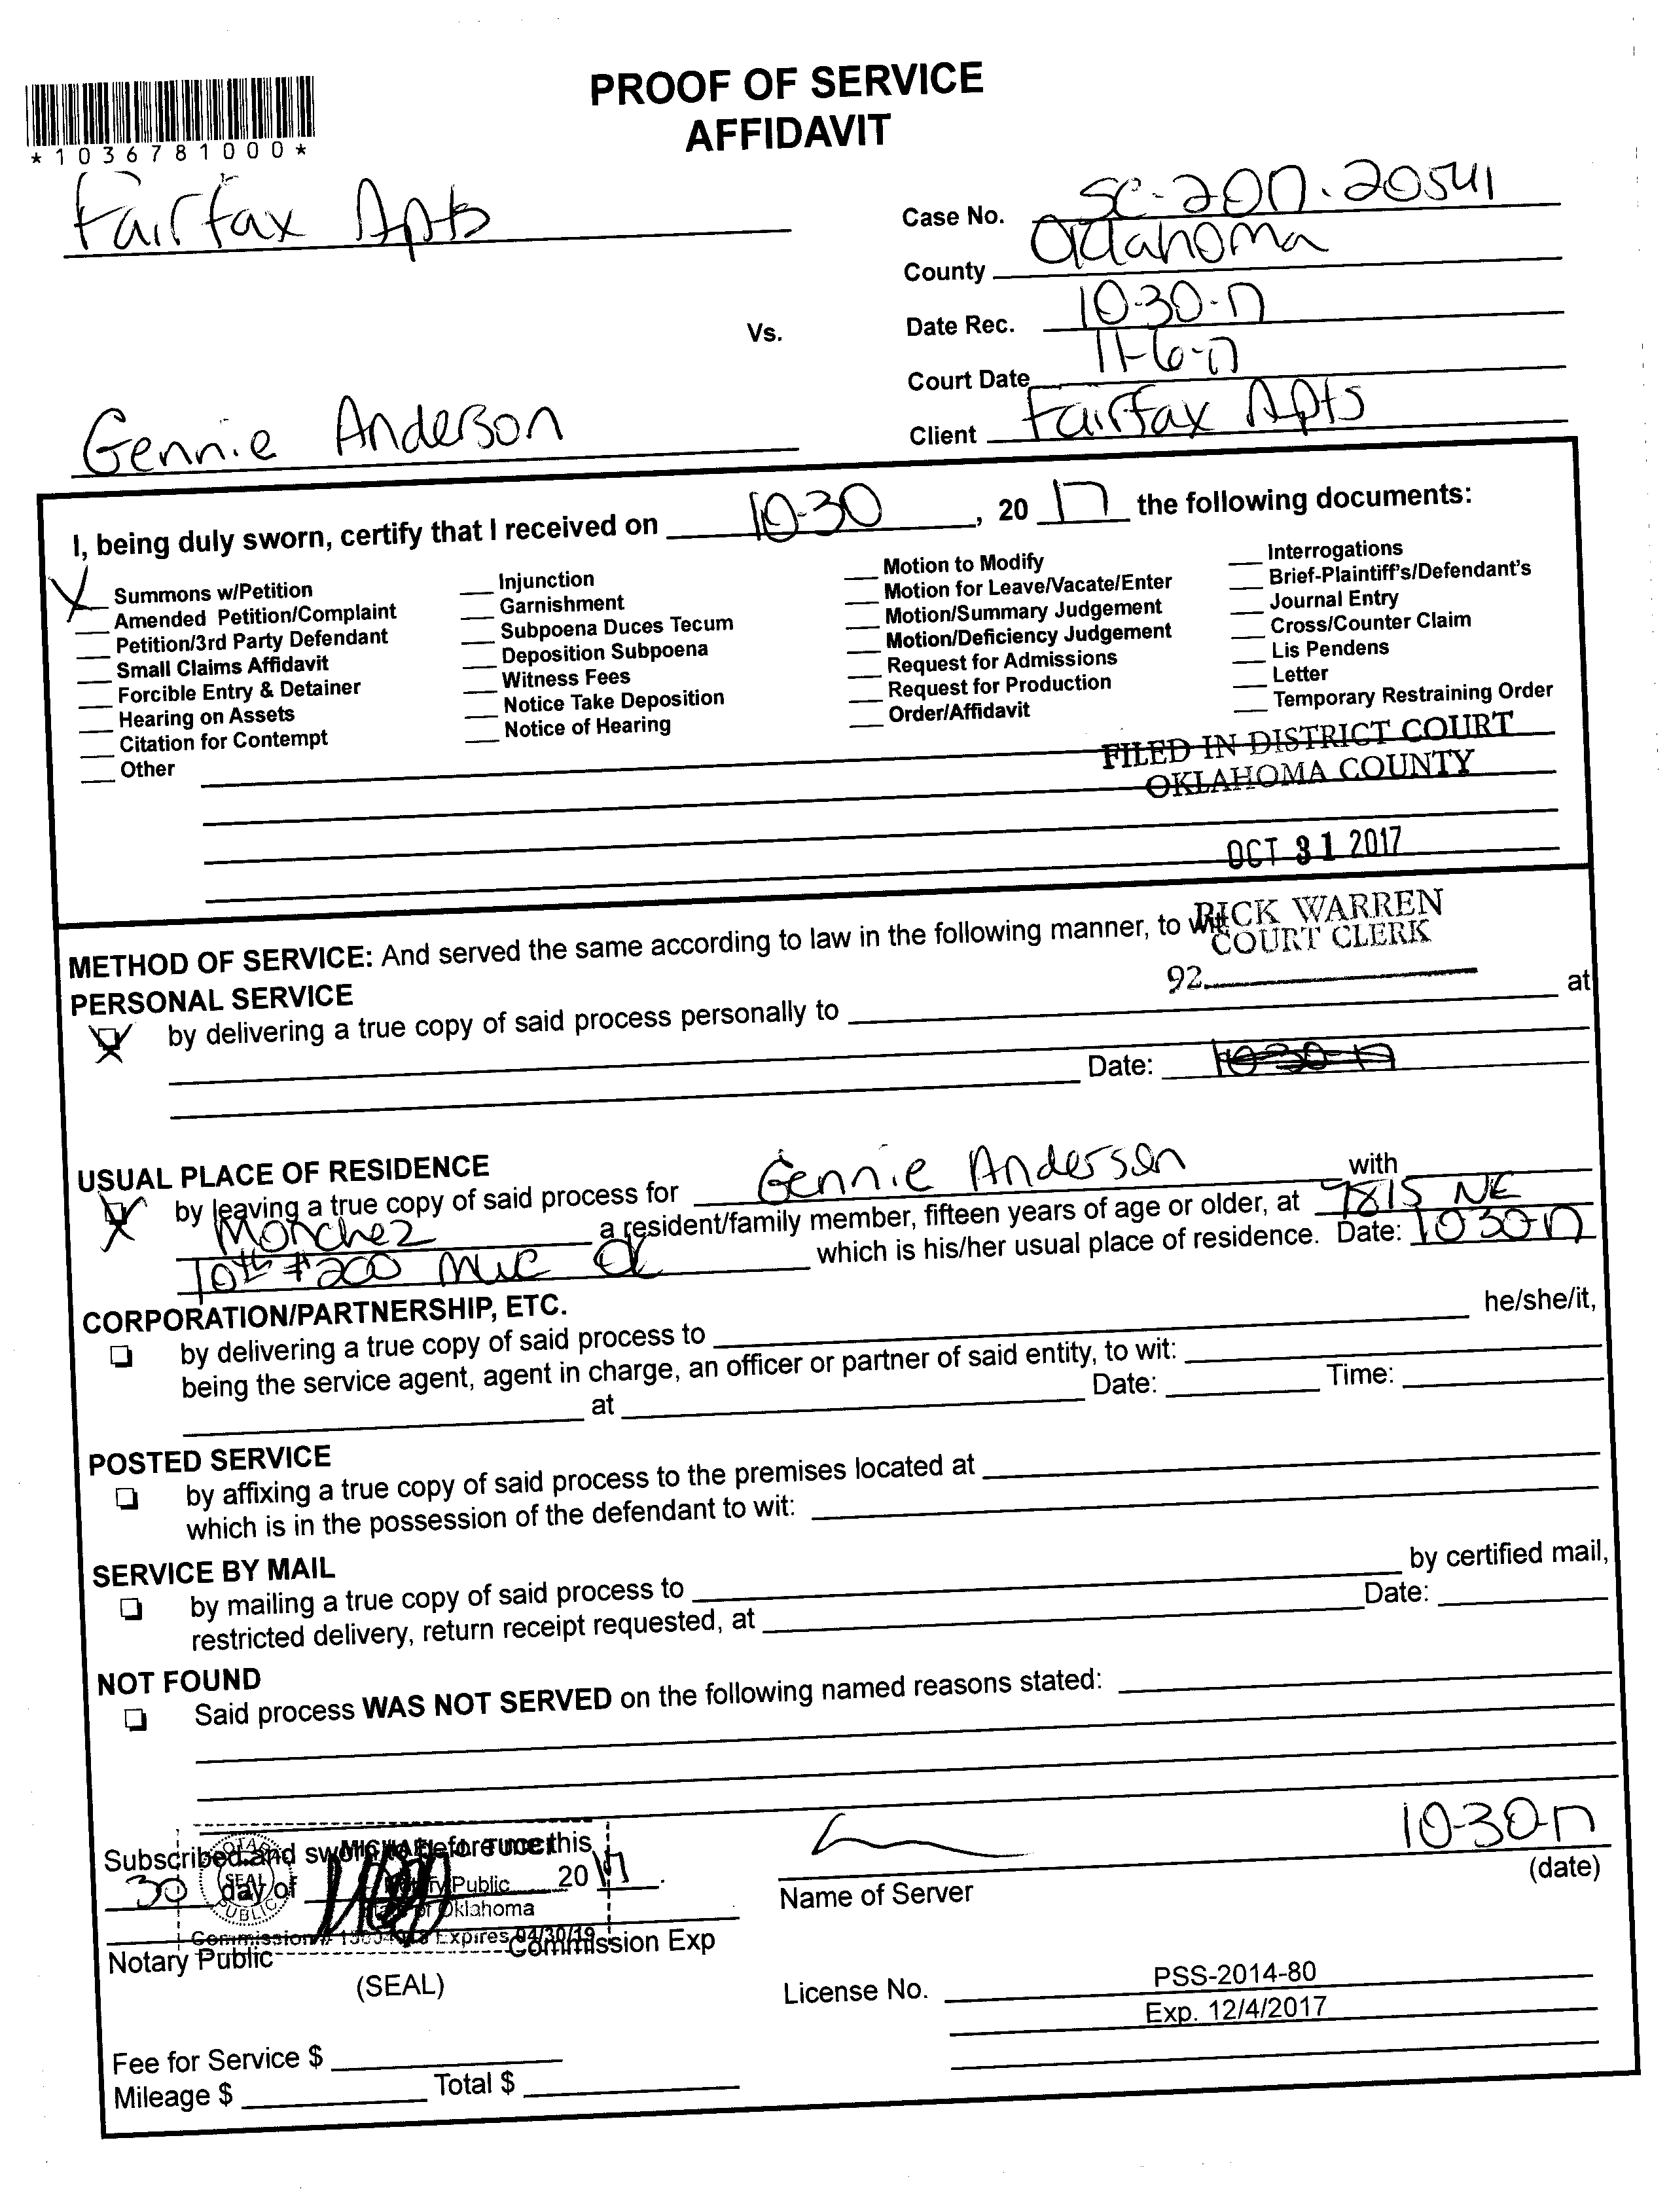 PROOF OF SERVICE
AFFIDAVIT
*1036781000*
Fairfax Apts
Case No. SC-2017-20541
County Oklahoma
Date Rec. 10-30-17
Vs.
Court Date 11-6-17
Client Fairfax Apts
Gennie Anderson
I, being duly sworn, certify that I received on 10-30, 20 17 the following documents:
X Summons w/Petition
Amended Petition/Complaint
Petition/3rd Party Defendant
Small Claims Affidavit
Forcible Entry & Detainer
Hearing on Assets
Citation for Contempt
Other
Injunction
Garnishment
Subpoena Duces Tecum
Deposition Subpoena
Witness Fees
Notice Take Deposition
Notice of Hearing
Motion to Modify
Motion for Leave/Vacate/Enter
Motion/Summary Judgement
Motion/Deficiency Judgement
Request for Admissions
Request for Production
Order/Affidavit
Interrogations
Brief-Plaintiff's/Defendant's
Journal Entry
Cross/Counter Claim
Lis Pendens
Letter
Temporary Restraining Order
FILED IN DISTRICT COURT
OKLAHOMA COUNTY
OCT 31 2017
RICK WARREN
COURT CLERK
92
METHOD OF SERVICE: And served the same according to law in the following manner, to wit:
PERSONAL SERVICE
X by delivering a true copy of said process personally to at
Date: 10-30-17
USUAL PLACE OF RESIDENCE
X by leaving a true copy of said process for Gennie Anderson with
Monchez a resident/family member, fifteen years of age or older, at 9815 NE
10th #200 MWC OK which is his/her usual place of residence. Date: 10 30-17
CORPORATION/PARTNERSHIP, ETC.
by delivering a true copy of said process to he/she/it,
being the service agent, agent in charge, an officer or partner of said entity, to wit:
at Date: Time:
POSTED SERVICE
by affixing a true copy of said process to the premises located at
which is in the possession of the defendant to wit:
SERVICE BY MAIL
by mailing a true copy of said process to by certified mail,
restricted delivery, return receipt requested, at Date:
NOT FOUND
Said process WAS NOT SERVED on the following named reasons stated:
Subscribed and sworn to before me this
30 day of 20 17.
NOTARY PUBLIC SEAL
Notary Public
State of Oklahoma
Expires 04/30/19
Notary Public Commission Exp
(SEAL)
10-30-17
Name of Server (date)
License No. PSS-2014-80
Exp. 12/4/2017
Fee for Service $
Mileage $ Total $